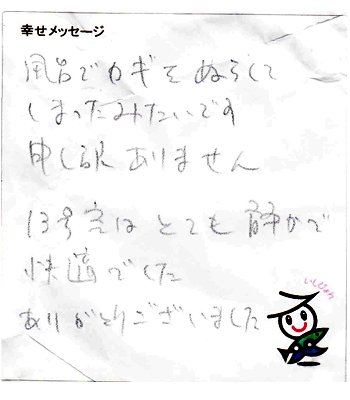 幸せメッセージ
風呂でカギをぬらして
しまったみたいです
申し訳ありません
13号室はとても静かで
快適でした
ありがとうございました